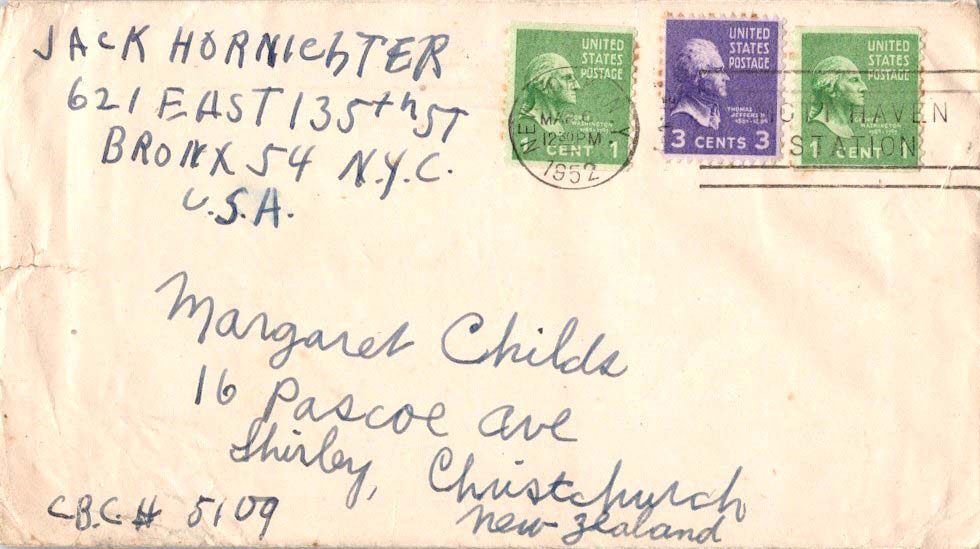 JACK HORNICHTER
621 EAST 135th ST
BRONX 54 N.Y.C.
U.S.A.
UNITED
STATES
POSTAGE
GEORGE
WASHINGTON
CENT 1
UNITED
STATES
POSTAGE
THOMAS
JEFFERSON
3 CENTS 3
UNITED
STATES
POSTAGE
WASHINGTON
1 CENT 1
NEW N.Y.
MAR
12 30 PM
1952
HAVEN
STATION
Margaret Childs
16 Pascoe Ave
Shirley, Christchurch
New-Zealand
C.B.C.# 5109